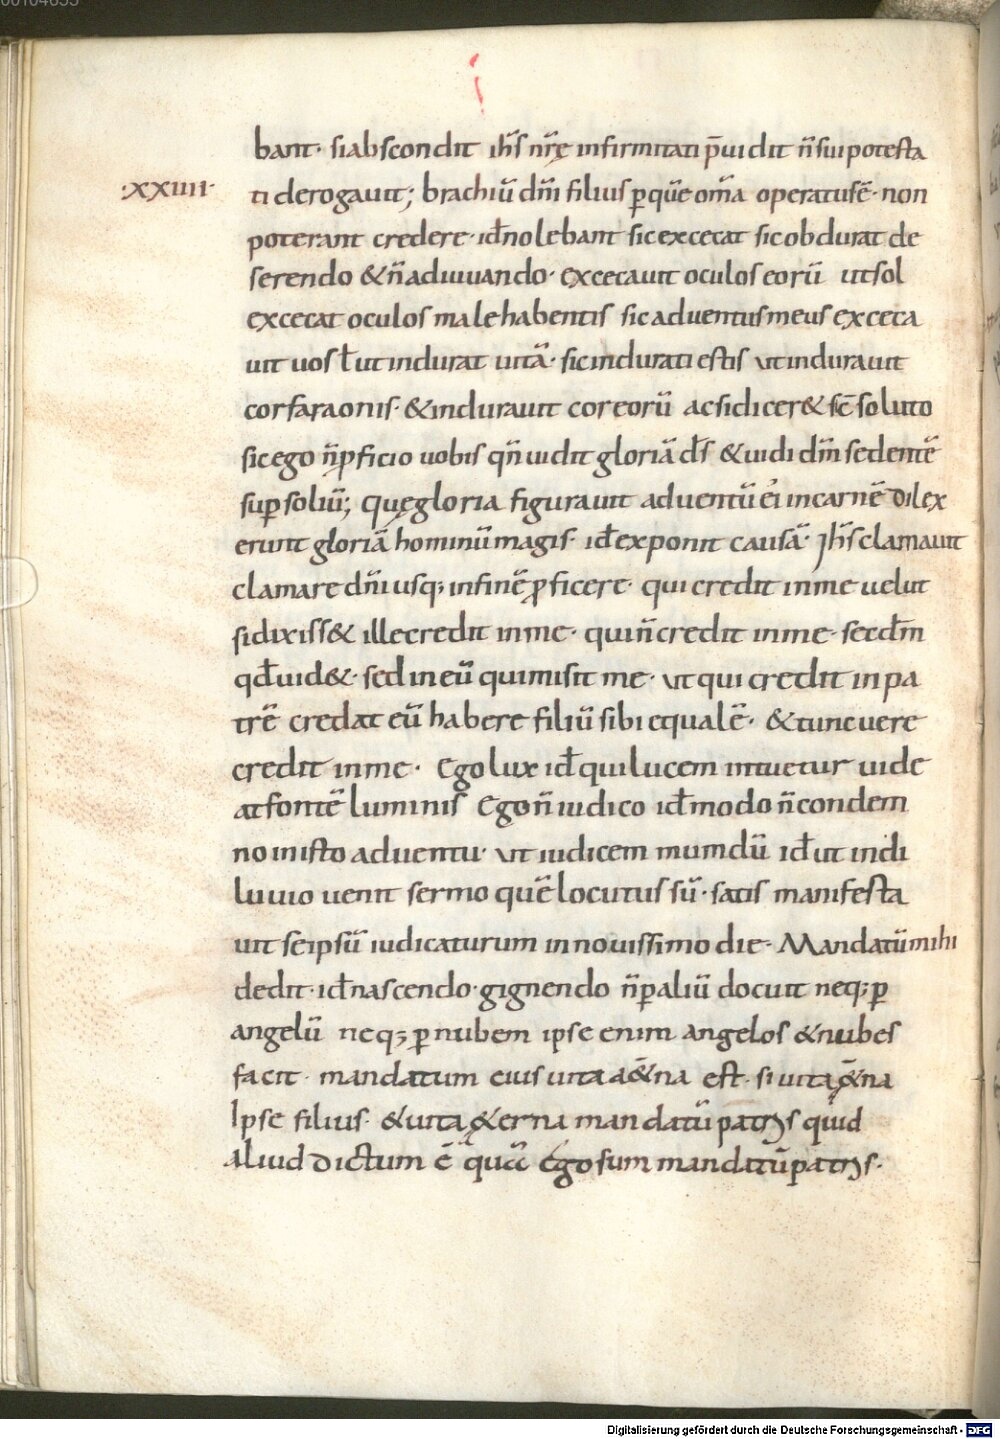 bant· si abscondit ih̅s nr̅ę infirmitati p̅uidit n̅ sui potesta
·XXIIII· ti derogauit; brachiū dn̅i filius ꝑ quē om̅a operatus ē· non
poterant credere· id̅ nolebant sic excecat sic obdurat de
serendo & n̅ adiuuando· excecauit oculos eorū ut sol
excecat oculos male habentis sic aduentus meus exceca
uit uos ł ut indurat uitā· sic indurati estis ut indurauit
cor faraonis· & indurauit cor eorū ac si dicer& sc̅ soluto
sic ego n̅ ꝓficio uobis qn̅ uidit gloriā di̅ & uidi dn̅m sedentē
suꝑ soliū; quę gloria figurauit aduentū ei' in carnē dilex
erunt gloriā hominū magis· id̅ exponit causā· Ih̅s clamauit
clamare dn̅i usq; in finē ꝓficere· qui credit in me uelut
si dixiss& ille credit in me· qui n̅ credit in me· secdm̅
qd̅ uid&· sed in eū qui misit me· ut qui credit in pa
trē credat eū habere filiū sibi equalē· & tunc uere
credit in me· Ego lux id̅ qui lucem intuetur uide
at fontē luminis Ego n̅ iudico id̅ modo n̅ condem
no in isto aduentu· ut iudicem mumdū id̅ ut in di
luuio uenit sermo quē locutus sū· satis manifesta
uit se ipsū iudicaturum in nouissimo die· Mandatū mihi
dedit· id̅ nascendo· gignendo n̅ ꝑ aliū docuit neq; ꝑ
angelū neq; ꝑ nubem ipse enim angelos & nubes
facit· mandatum eius uita ę&̅na est· si uita ę&̅na
Ipse filius· & uita ę&erna mandatū patris quid
aliud dictum ē quā Ego sum mandatū patris·
Digitalisierung gefördert durch die Deutsche Forschungsgemeinschaft - DFG